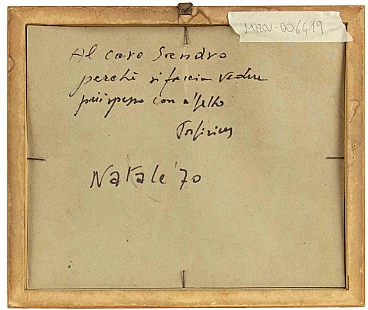 MACV-006419
Al caro Sandro
perché si faccia vedere
più spesso con affetto
Natale '70